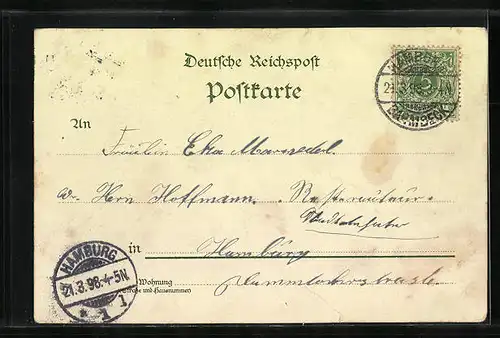 Deutsche Reichspost
Postkarte
HAMBURG
21.3.98. 4-5N
BARMBECK
An
Fräulein Eka
Hrn Hoffmann. Restaurateur
in Hamburg
HAMBURG
21.3.98. 4-5N.
* 1 1
Wohnung
(Straße und Hausnummer)